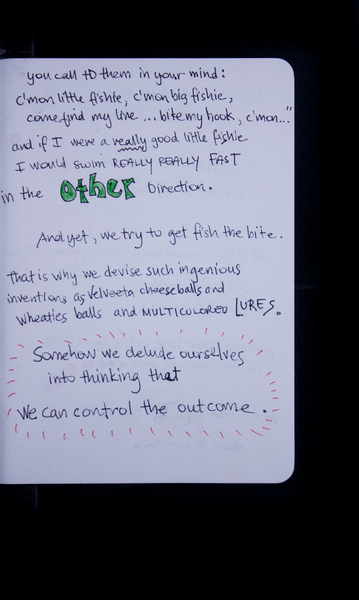 you call to them in your mind:
c'mon little fishie, c'mon big fishie,
come find my line ... bite my hook, c'mon..."
and if I were a really good little fishie
I would swim REALLY REALLY FAST
in the OtHER Direction.
And yet, we try to get fish the bite.
That is why we devise such ingenious
inventions as Velveeta cheeseballs and
wheaties balls and MULTICOLORED LURES.
Somehow we delude ourselves
into thinking that
we can control the outcome.